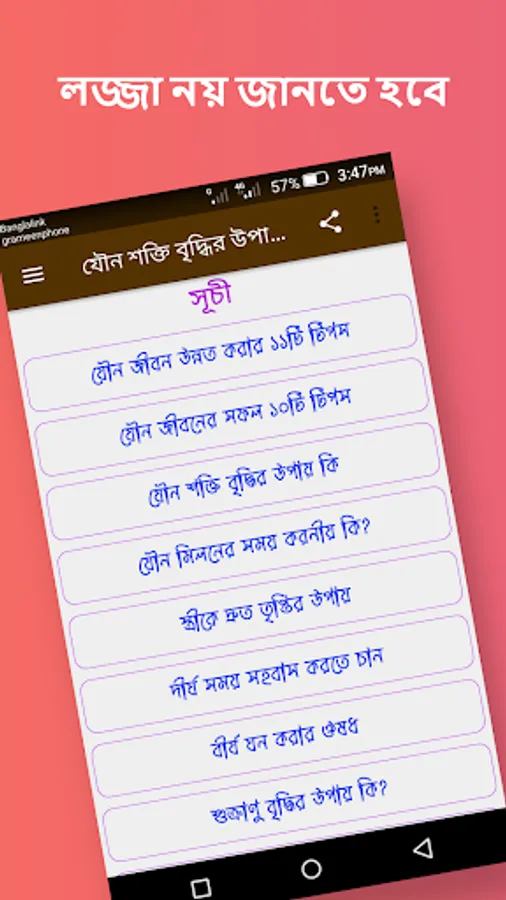 লজ্জা নয় জানতে হবে
Banglalink
grameenphone
4G 57% 3:47PM
যৌন শক্তি বৃদ্ধির উপা...
সূচী
যৌন জীবন উন্নত করার ১১টি টিপস
যৌন জীবনের সফল ১০টি টিপস
যৌন শক্তি বৃদ্ধির উপায় কি
যৌন মিলনের সময় করনীয় কি?
স্ত্রীকে দ্রুত তৃপ্তির উপায়
দীর্ঘ সময় সহবাস করতে চান
বীর্য ঘন করার ঔষধ
শুক্রাণু বৃদ্ধির উপায় কি?